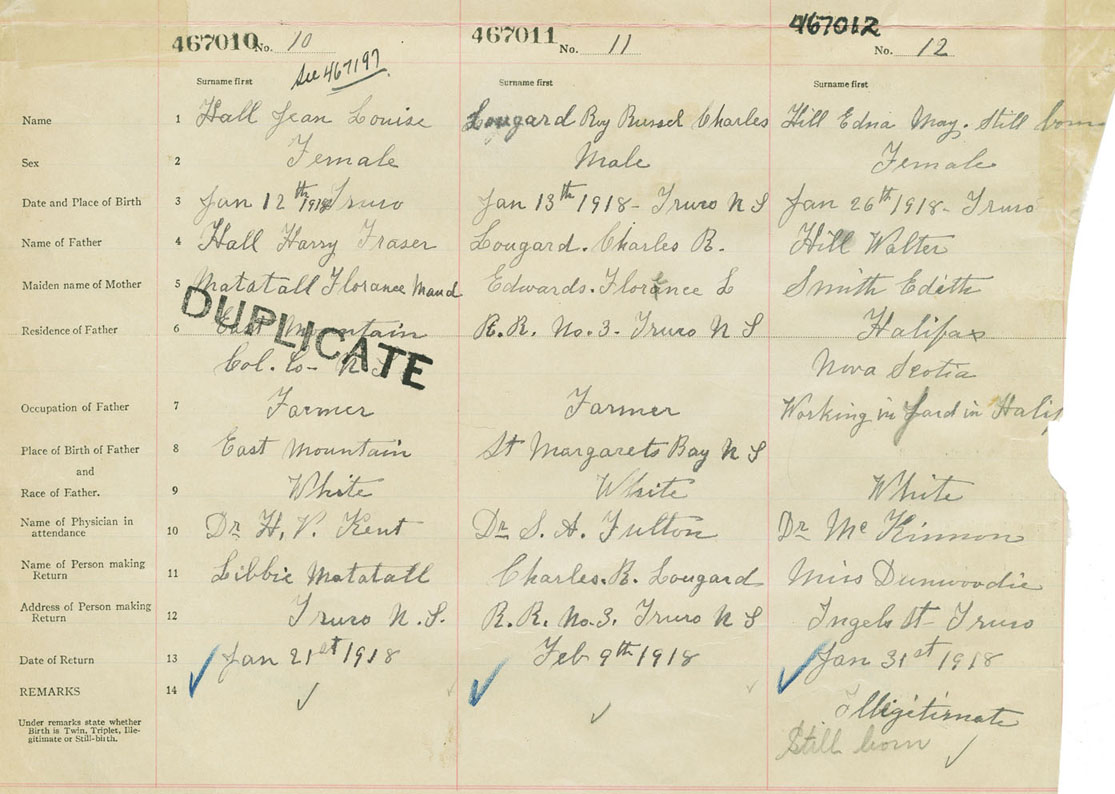 467010 No. 10 467011 No. 11 467012 No. 12
See 467197
Surname first Surname first Surname first
Name 1 Hall Jean Louise Lougard Roy Russel Charles Hill Edna May. Still born
Sex 2 Female Male Female
Date and Place of Birth 3 Jan 12th 1918 Truro Jan 13th 1918 - Truro N S Jan 26th 1918 - Truro
Name of Father 4 Hall Harry Fraser Lougard. Charles R. Hill Walter
Maiden name of Mother 5 Matatall Florance Maud Edwards. Florence L Smith Edith
DUPLICATE
Residence of Father 6 East Mountain R.R. No. 3. Truro N S Halifax
Col. Co - N S Nova Scotia
Occupation of Father 7 Farmer Farmer Working in Yard in Halif
Place of Birth of Father 8 East Mountain St Margarets Bay N S
and
Race of Father. 9 White White White
Name of Physician in
attendance 10 Dr H. V. Kent Dr S. A. Fulton Dr McKinnon
Name of Person making
Return 11 Libbie Matatall Charles. R. Lougard Miss Dunwoodie
Address of Person making
Return 12 Truro N.S. R.R. No. 3. Truro N S Ingels St - Truro
Date of Return 13 Jan 21st 1918 Feb 9th 1918 Jan 31st 1918
REMARKS 14 Illigitimate
Under remarks state whether
Birth is Twin, Triplet, Ille-
gitimate or Still-birth.
Still born